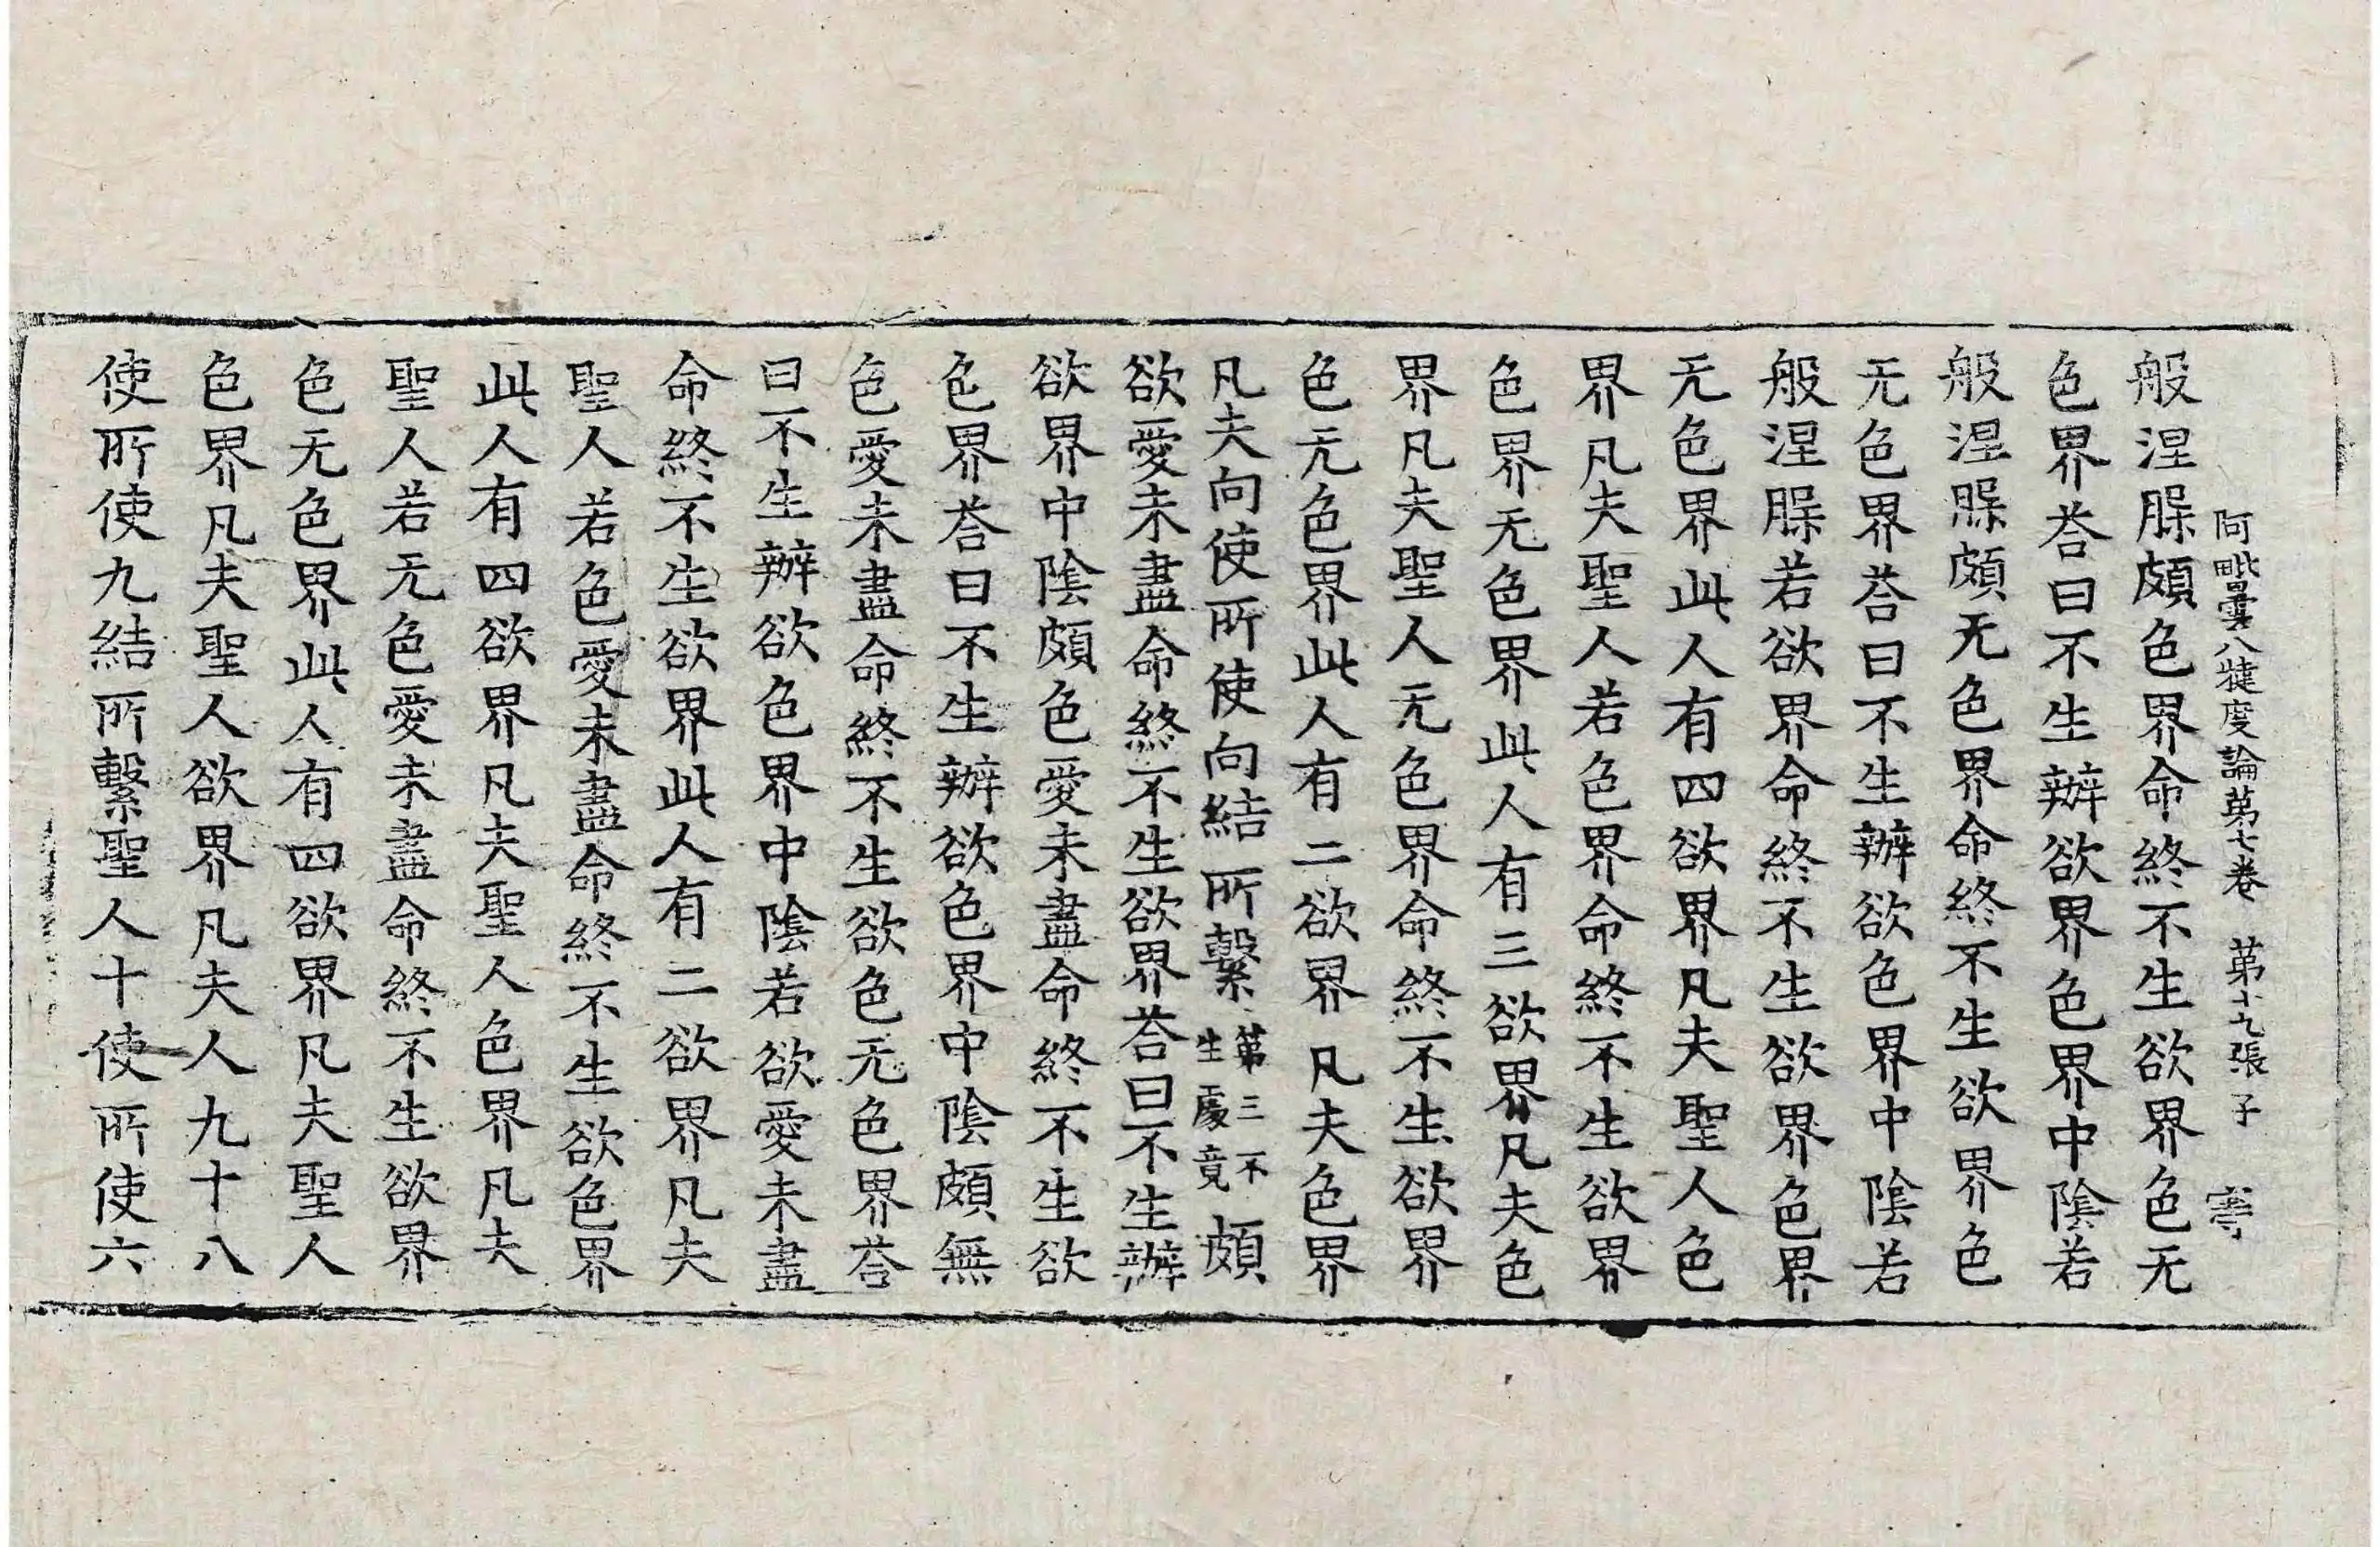 阿毗曇八犍度論苐七卷 苐十九張子 寕
般涅脵頗色界命終不生欲界色无
色界荅曰不生辦欲界色界中陰若
般涅脵頗无色界命終不生欲界色
无色界荅曰不生辦欲色界中陰若
般涅脵若欲界命終不生欲界色界
无色界此人有四欲界凡夫聖人色
界凡夫聖人若色界命終不生欲界
色界无色界此人有三欲界凡夫色
界凡夫聖人无色界命終不生欲界
色无色界此人有二欲界凡夫色界
凡夫向使所使向結所繫苐三不生處竟頗
欲愛未盡命終不生欲界荅曰不生辦
欲界中陰頗色愛未盡命終不生欲
色界荅曰不生辦欲色界中陰頗無
色愛未盡命終不生欲色无色界荅
曰不生辦欲色界中陰若欲愛未盡
命終不生欲界此人有二欲界凡夫
聖人若色愛未盡命終不生欲色界
此人有四欲界凡夫聖人色界凡夫
聖人若无色愛未盡命終不生欲界
色无色界此人有四欲界凡夫聖人
色界凡夫聖人欲界凡夫人九十八
使所使九結所繫聖人十使所使六